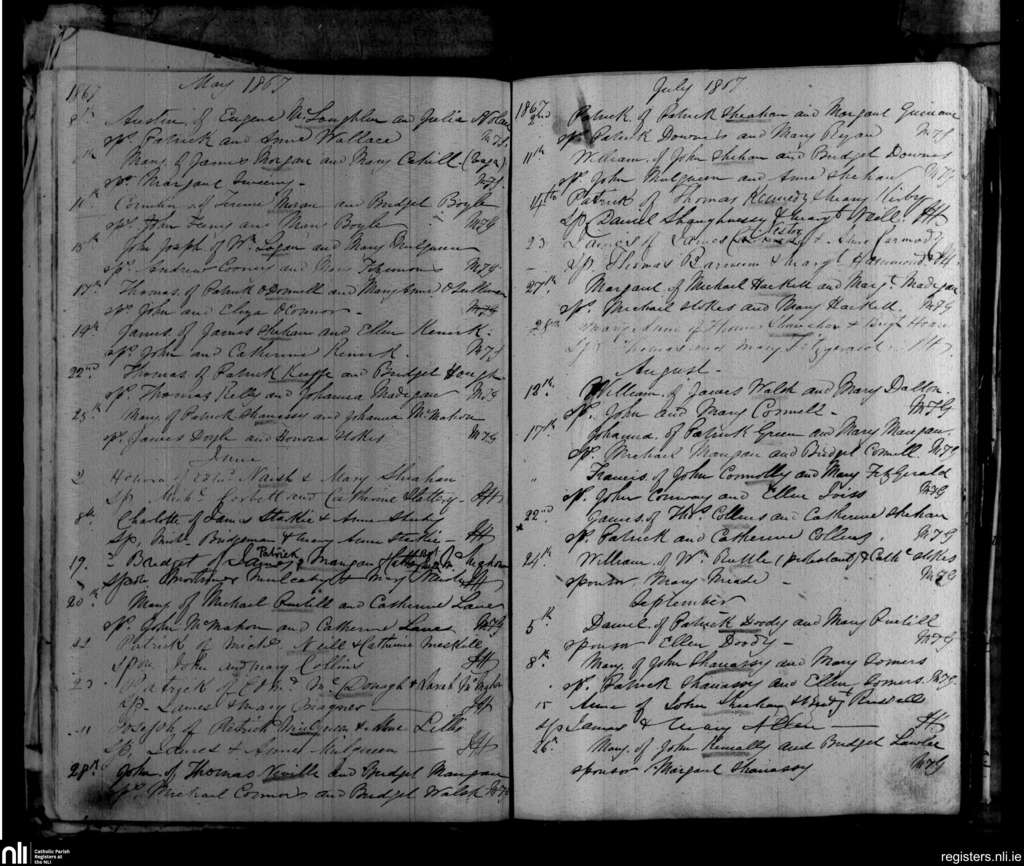 May 1867
1867
8th Austin, of Eugene McLoughlin and Julia Nolan
Sps Patrick and Anne Wallace M.F.G.
Mary, of James Morgan and Mary Cahill
Sps Margaret Sweeny
of Terence Moran and Bridget Boyle
Sps John and Mary Boyle M.F.G
13th John Joseph of Wm Logan and Mary Mulqueen
Sps Andrew Connors and Fitzsimons M.F.G
17th Thomas, of Patrick O'Donnell and Mary Anne O'Sullivan
Sps John and Eliza O'Connor - M.F.G
19th James, of James Sheehan and Ellen Renick.
Sps John and Catherine Renick. M.F.G
22nd Thomas of Patrick and Bridget Hough
Sps Thomas Kelly and Johanna Madigan M.F.G
25th Mary, of Patrick Shanassy and Johanna McMahon
Sps James Doyle and Honora Stokes M.F.G
June
2 Honora of Naish & Mary Sheahan
Sp Michl Corbett and Catherine Slattery - HH
8th Charlotte, of James & Anne
Sp, Mich Bridgeman & Mary Anne HH
19. Bridget of James Patrick Mangan
Mulcahy & Mary HH
20th Mary of Michael Purtill and Catherine Lane
Sps John McMahon and Catherine Lane M.F.G
Patrick of Michl Neill & Catherine Meskill
Spon John and Mary Collins HH
23 Patrick of Edmd McDonogh & Sarah
Sp James & Mary HH
" Joseph of Patrick Mulqueen & Anne Lillis
Sp James & Anne Mulqueen HH
28th John, of Thomas Neville and Bridget Mangan
Sps Michael Connors and Bridget Walsh M.F.G
July 1867
1867
2nd Patrick, of Patrick Sheahan and Margaret Guinane
Sps Patrick Downes and Mary Ryan M.F.G
11th William, of John Shehan and Bridget Downes
Sps John Mulqueen and Anne Shehan M.F.G
14th Patrick of Thomas Kennedy & Mary Kirby
Sp Daniel Shaughnessy & Mary Neill. HH
23 James of James & Anne Carmody
Sp Thomas & Mary Hammond HH
27th Margaret of Michael Hackett and Margt Madigan
Sps Michael Stokes and Mary Hackett. M.F.G
28th Mary Anne of Thomas Shanahan &
Sp Thomas and Mary Fitzgerald HH
August -
12th William, of James Walsh and Mary Dalton
Sps John and Mary Connell - M.F.G
17th Johanna, of Patrick Green and Mary Mangan
Sps Michael Mangan and Bridget Connell M.F.G
" Francis, of John Connolly and Mary FitzGerald
Sps John Conway and Ellen M.F.G
22nd James, of Thos Collins and Catherine Shehan
Sps Patrick and Catherine Collins M.F.G
24th William of Wm Ruttle (protestant) & Cathe Stokes
Sponsor Mary Meade - M.F.G
September
5th Daniel of Patrick Doody and Mary Purtill
sponsor Ellen Doody - M.F.G
8th Mary, of John Shanassy and Mary Somers
Sps Patrick Shanassy and Ellen Somers. M.F.G
15 Anne of John Sheehan & Bridgt Russell
Sp James & Mary Allen HH
26th Mary, of John and Bridget Lawlor
sponsor Margaret Shanassy M.F.G
nli Catholic Parish Registers at the NLI
registers.nli.ie